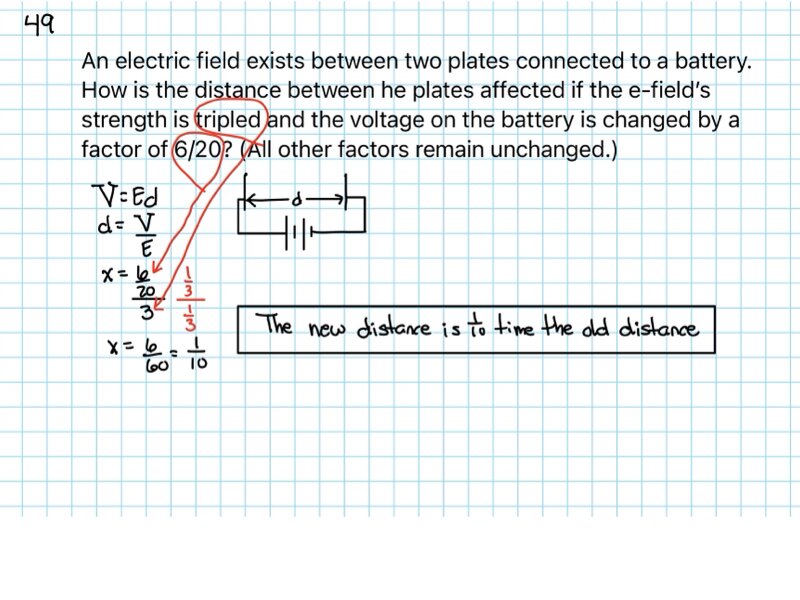 49
An electric field exists between two plates connected to a battery.
How is the distance between he plates affected if the e-field's
strength is tripled and the voltage on the battery is changed by a
factor of 6/20? (All other factors remain unchanged.)
V=Ed
d
d= V/E
x= 6/20/3 1/3/1/3
The new distance is 1/10 time the old distance
x= 6/60 = 1/10